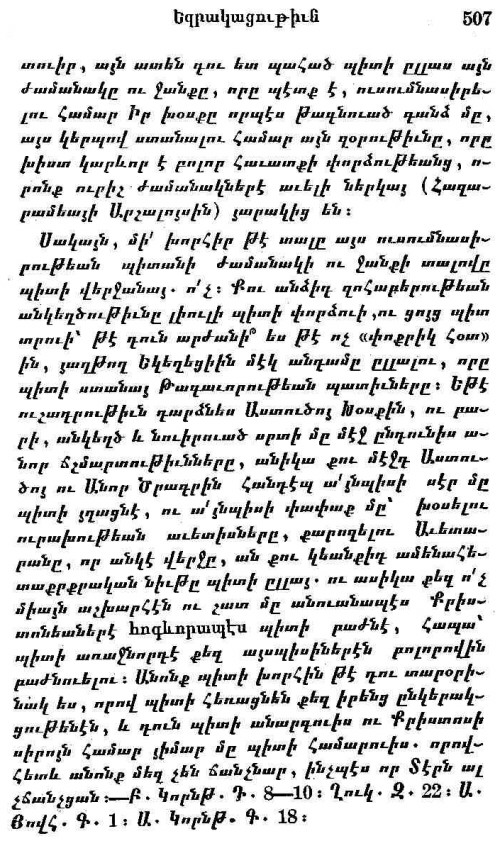 Եզրակացութիւն 507
տուիր, այն ատեն դու ետ պահած պիտի ըլլաս այն
ժամանակը ու ջանքը, որը պէտք է, ուսումնասիրե-
լու համար Իր խօսքը որպէս թագնուած գանձ մը,
այս կերպով ստանալու համար այն զօրութիւնը, որը
խիստ կարևոր է բոլոր հաւատքի փորձութեանց, ո-
րոնք ուրիշ ժամանակներէ աւելի ներկայ (Հազա-
րամեայի Արշալոյսին) յարակից են։
Սակայն, մի՛ խորհիր թէ տալը այս ուսումնասի-
րութեան պիտանի ժամանակի ու ջանքի տալովը
պիտի վերջանայ. ո՛չ։ Քու անձիդ զոհաբերութեան
անկեղծութիւնը լիուլի պիտի փորձուի, ու ցոյց պիտ
տրուի՝ թէ դուն արժանի՞ ես թէ ոչ «փոքրիկ հօտ»
ին, յաղթող Եկեղեցիին մէկ անդամը ըլլալու, որը
պիտի ստանայ Թագաւորութեան պատիւները։ Եթէ
ուշադրութիւն դարձնես Աստուծոյ Խօսքին, ու բա-
րի, անկեղծ և նուիրուած սրտի մը մէջ ընդունիս ա-
նոր ճշմարտութիւնները, անիկա քու մէջդ Աստու-
ծոյ ու Անոր Ծրագրին հանդէպ ա՛յնպիսի սէր մը
պիտի յղացնէ, ու ա՛յնպիսի փափաք մը՝ խօսելու
ուրախութեան աւետիսները, քարոզելու Աւետա-
րանը, որ անկէ վերջը, ան քու կեանքիդ ամենահե-
տաքրքրական նիւթը պիտի ըլլայ. ու ասիկա քեզ ո՛չ
միայն աշխարհէն ու շատ մը անուանապէս Քրիս-
տոնեաներէ հոգևորապէս պիտի բաժնէ, հապա՝
պիտի առաջնորդէ քեզ այսպիսիներէն բոլորովին
բաժնուելու։ Անոնք պիտի խորհին թէ դու տարօրի-
նակ ես, որով պիտի հեռացնեն քեզ իրենց ընկերակ-
ցութենէն, և դուն պիտի անարգուիս ու Քրիստոսի
սիրոյն համար յիմար մը պիտի համարուիս. որով-
հետև անոնք մեզ չեն ճանչնար, ինչպէս որ Տէրն ալ
չճանչցան։—Բ. Կորնթ. Դ. 8—10։ Ղուկ. Զ. 22։ Ա.
Յովհ. Գ. 1։ Ա. Կորնթ. Գ. 18։